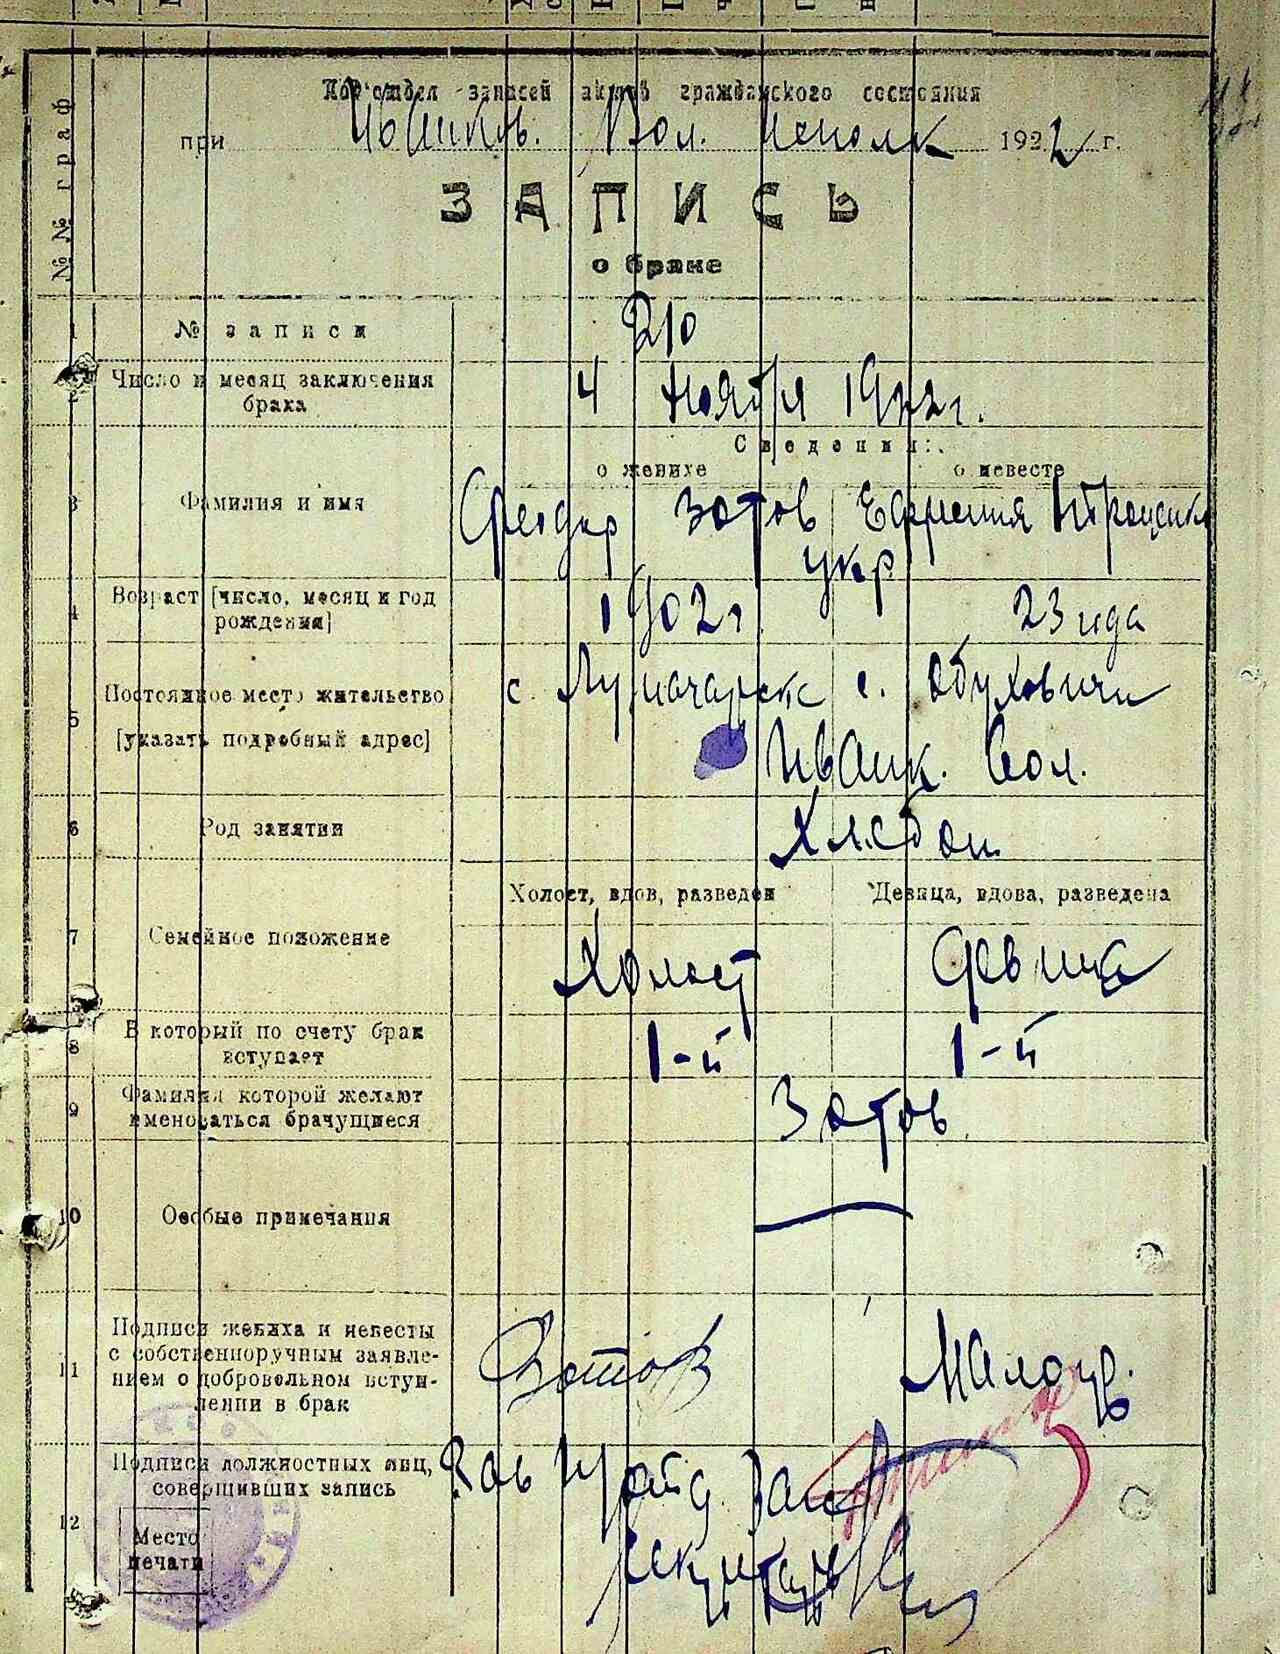 Подотдел записей актов гражданского состояния
при Иванков. Вол. исполк 1922 г.
ЗАПИСЬ
о браке
№№ граф
1 № записи 210
2 Число и месяц заключения брака 4 Ноября 1922 г.
Сведения:
о женихе о невесте
3 Фамилия и имя Феодор Зотов Ефимия Проценко
укр
4 Возраст [число, месяц и год рождения] 1902 г 23 года
5 Постоянное место жительство с. Луначарск с. Обуховичи
[указать подробный адрес] Иванк. Вол.
6 Род занятии Хлебоп.
Холост, вдов, разведен Девица, вдова, разведена
7 Семейное положение Холост девица
8 В который по счету брак вступает 1-й 1-й
9 Фамилия которой желают именоваться брачущиеся Зотов
10 Особые примечания
11 Подписи жениха и невесты
с собственноручным заявле-
нием о добровольном вступ-
лении в брак Зотов Малогр.
12 Подписи должностных лиц,
совершивших запись Зав
Секретарь
Место
печати